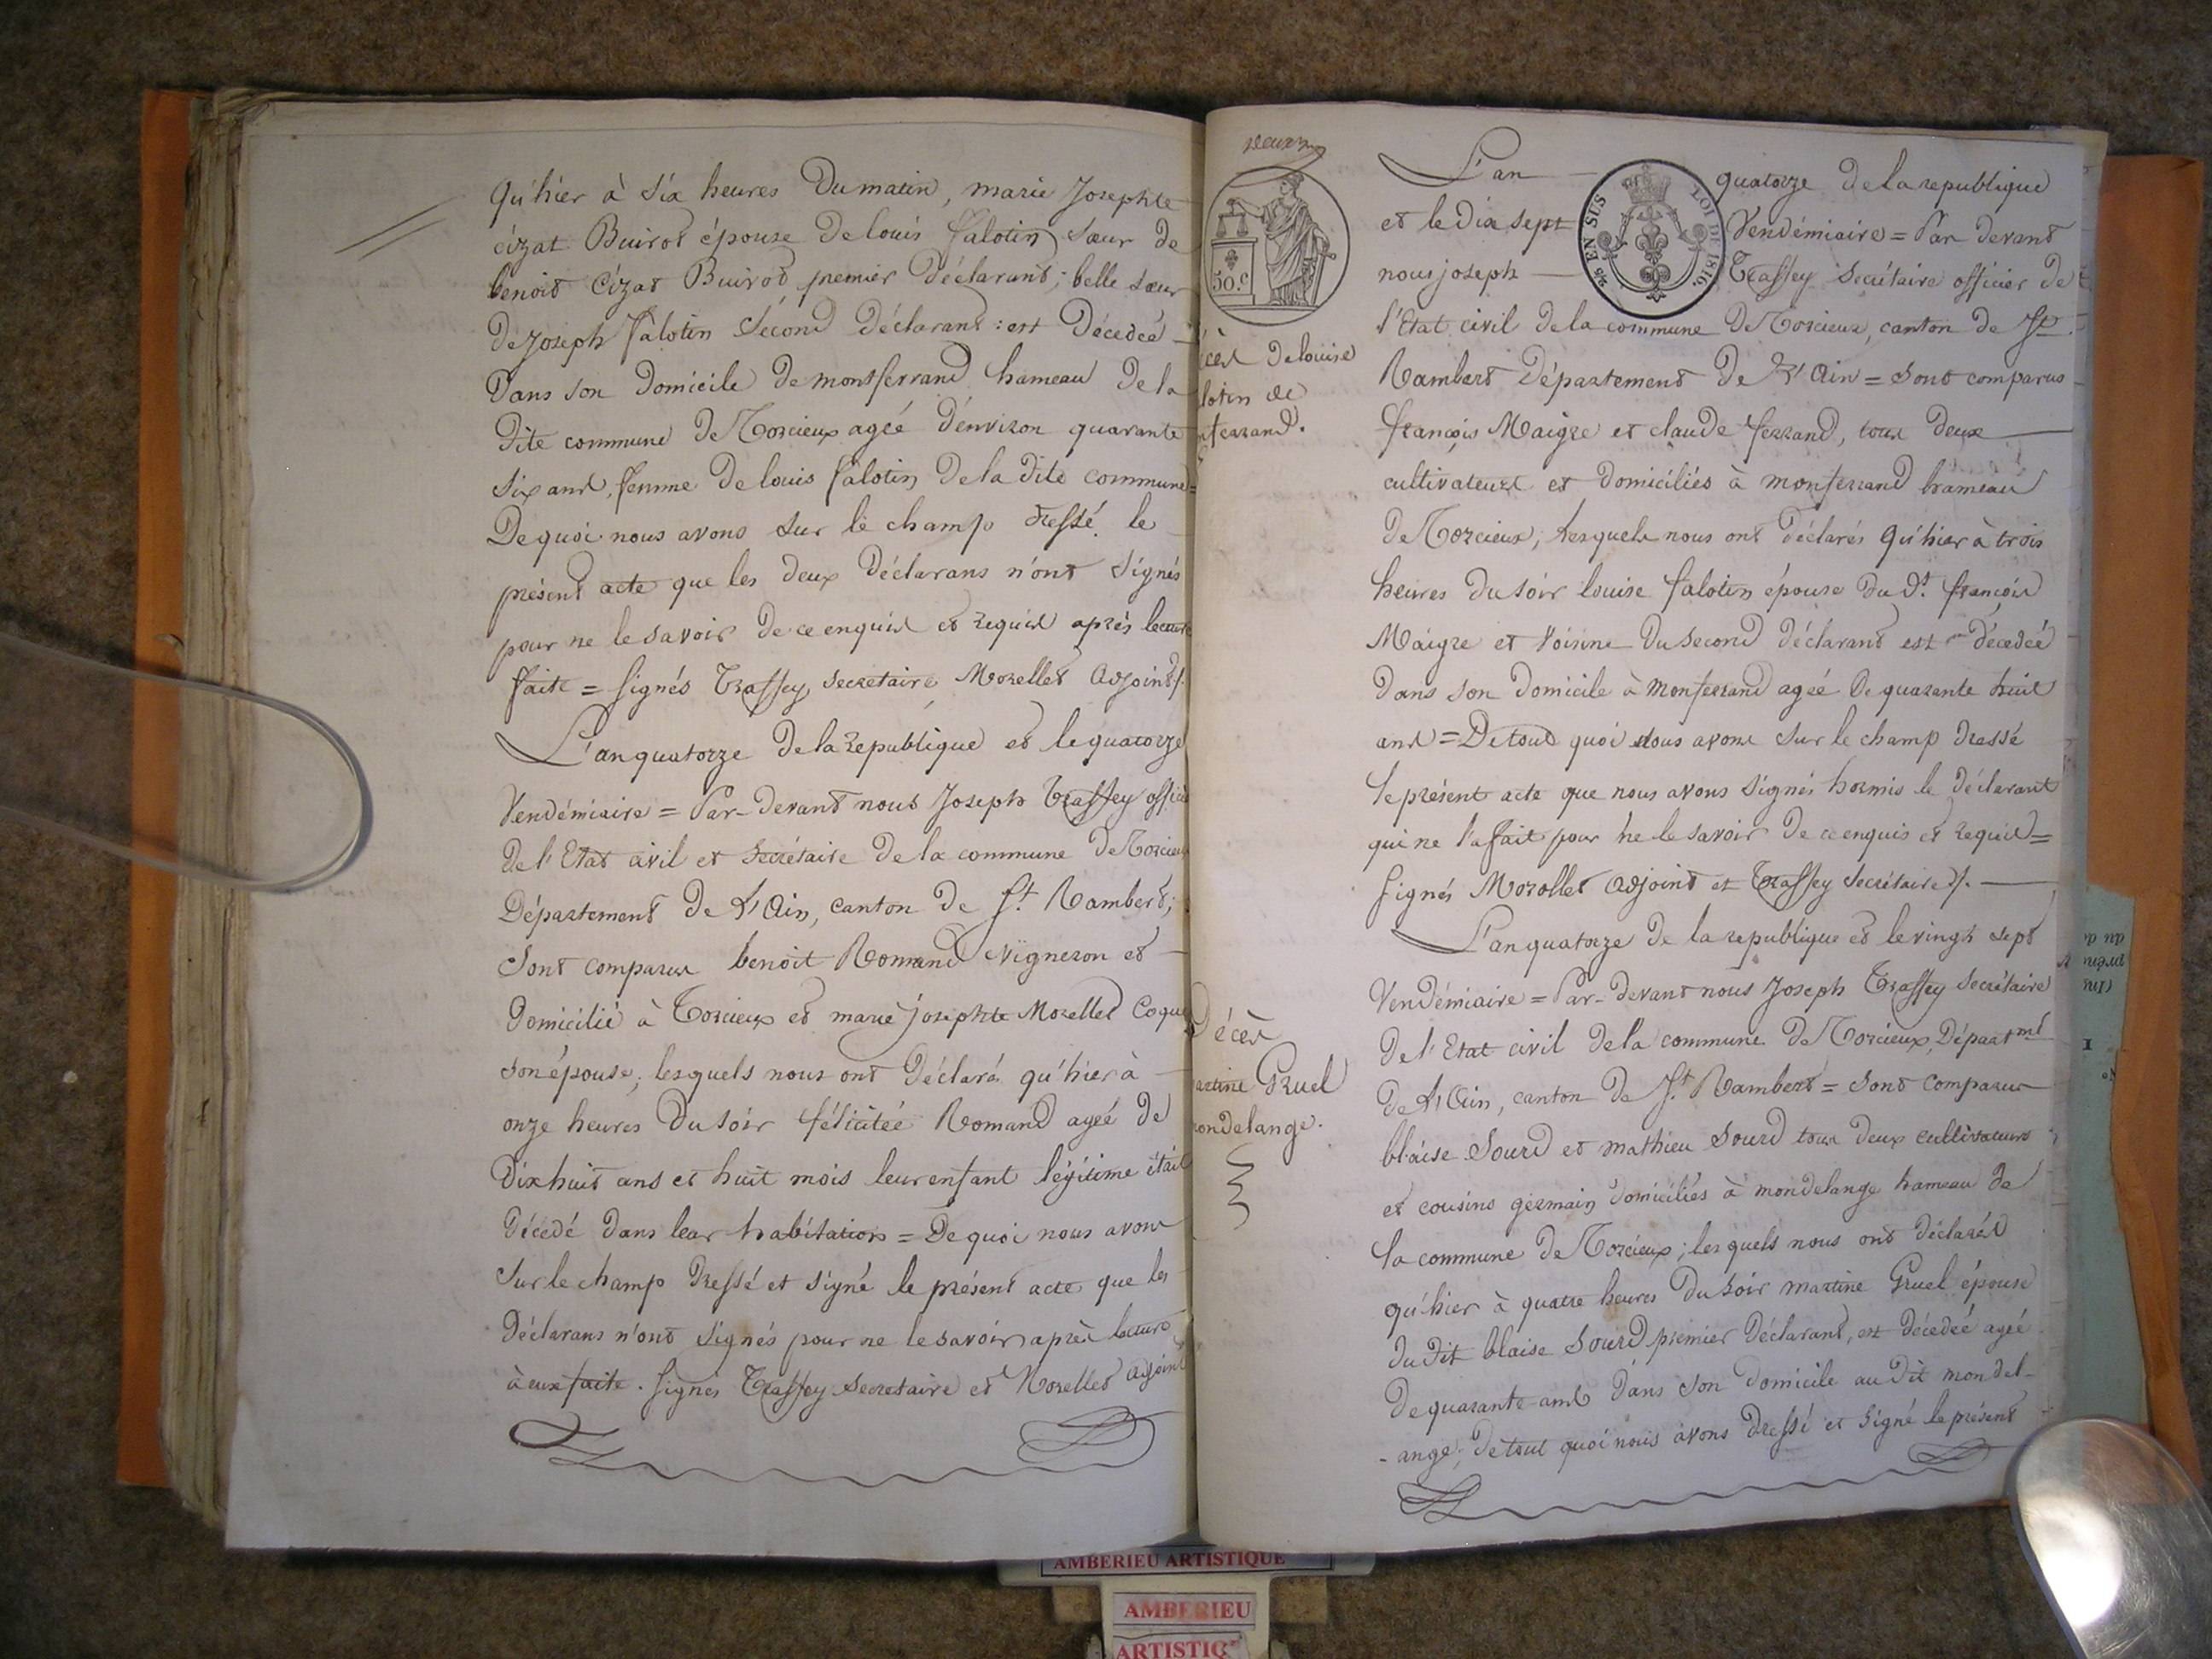 Qu'hier à six heures du matin, marie Josephte
cizat Buirod épouse de louis falotin sœur de
benoit Cizat Buirod premier déclarant; belle sœur
de joseph falotin second déclarant: est décedeé
dans son domicile de montferrand hameau de la
dite commune de Torcieux ageé d'environ quarante
six ans, femme de louis falotin de la dite commune =
De quoi nous avons sur le champ dressé le
présent acte que les deux déclarans n'ont signés
pour ne le savoir de ce enquis et requis après lecture
faite = signés Trassey, secretaire Morellet adjoint /.
L'an quatorze de la republique et le quatorze
Vendémiaire = Par-devant nous Joseph Trassey offici
de l'Etat civil et secrétaire de la commune de Torcieux
Département de L'Ain, canton de St. Rambert;
Sont comparus benoit Romand Vigneron et
domicilié à Torcieux et marie josephte Morellet Coque
son épouse; lesquels nous ont déclaré qu'hier à
onze heures du soir félicitée Romand ageé de
dix huit ans et huit mois leur enfant légitime était
décedé dans leur habitation = De quoi nous avons
sur le champ dressé et signé le présent acte que les
déclarans n'ont signés pour ne le savoir après lecture
à eux faite. signés Trassey secretaire et Morellet adjoint
50.c
écès de louise
lotin de
ntferrand.
Décès
artine Gruel
ondelange.
EN SUS LOI DE 1816.
L'an quatorze de la republique
et le dix sept Vendémiaire = Par devant
nous joseph Trassey Secrétaire officier de
l'Etat civil de la commune de Torcieux, canton de St.
Rambert Département de L'Ain = sont comparus
françois Maigre et claude ferrand, tous deux
cultivateurs et domiciliés à montferrand hameau
de Torcieux; lesquels nous ont déclarés qu'hier à trois
heures du soir louise falotin épouse du dt. françois
Maigre et voisine du second déclarant est décedeé
dans son domicile à Montferrand ageé de quarante huit
ans = De tout quoi nous avons sur le champ dressé
le présent acte que nous avons signés hormis le déclarant
qui ne l'a fait pour ne le savoir de ce enquis et requis =
signés Morellet adjoint et Trassey secrétaire /.
L'an quatorze de la republique et le vingt sept
Vendémiaire = Par-devant nous Joseph Trassey secrétaire
de l'Etat civil de la commune de Torcieux, Départmt
de L'Ain, canton de St. Rambert = sont comparus
blaise Sourd et mathieu Sourd tous deux cultivateurs
et cousins germain domiciliés à mondelange hameau de
la commune de Torcieux; lesquels nous ont déclarés
qu'hier à quatre heures du soir martine Gruel épouse
du dit blaise Sourd premier déclarant, est décedeé ageé
de quarante ans dans son domicile au dit mondel-
- ange; de tout quoi nous avons dressé et signé le présent
AMBERIEU ARTISTIQUE
AMBERIEU
ARTISTIQ